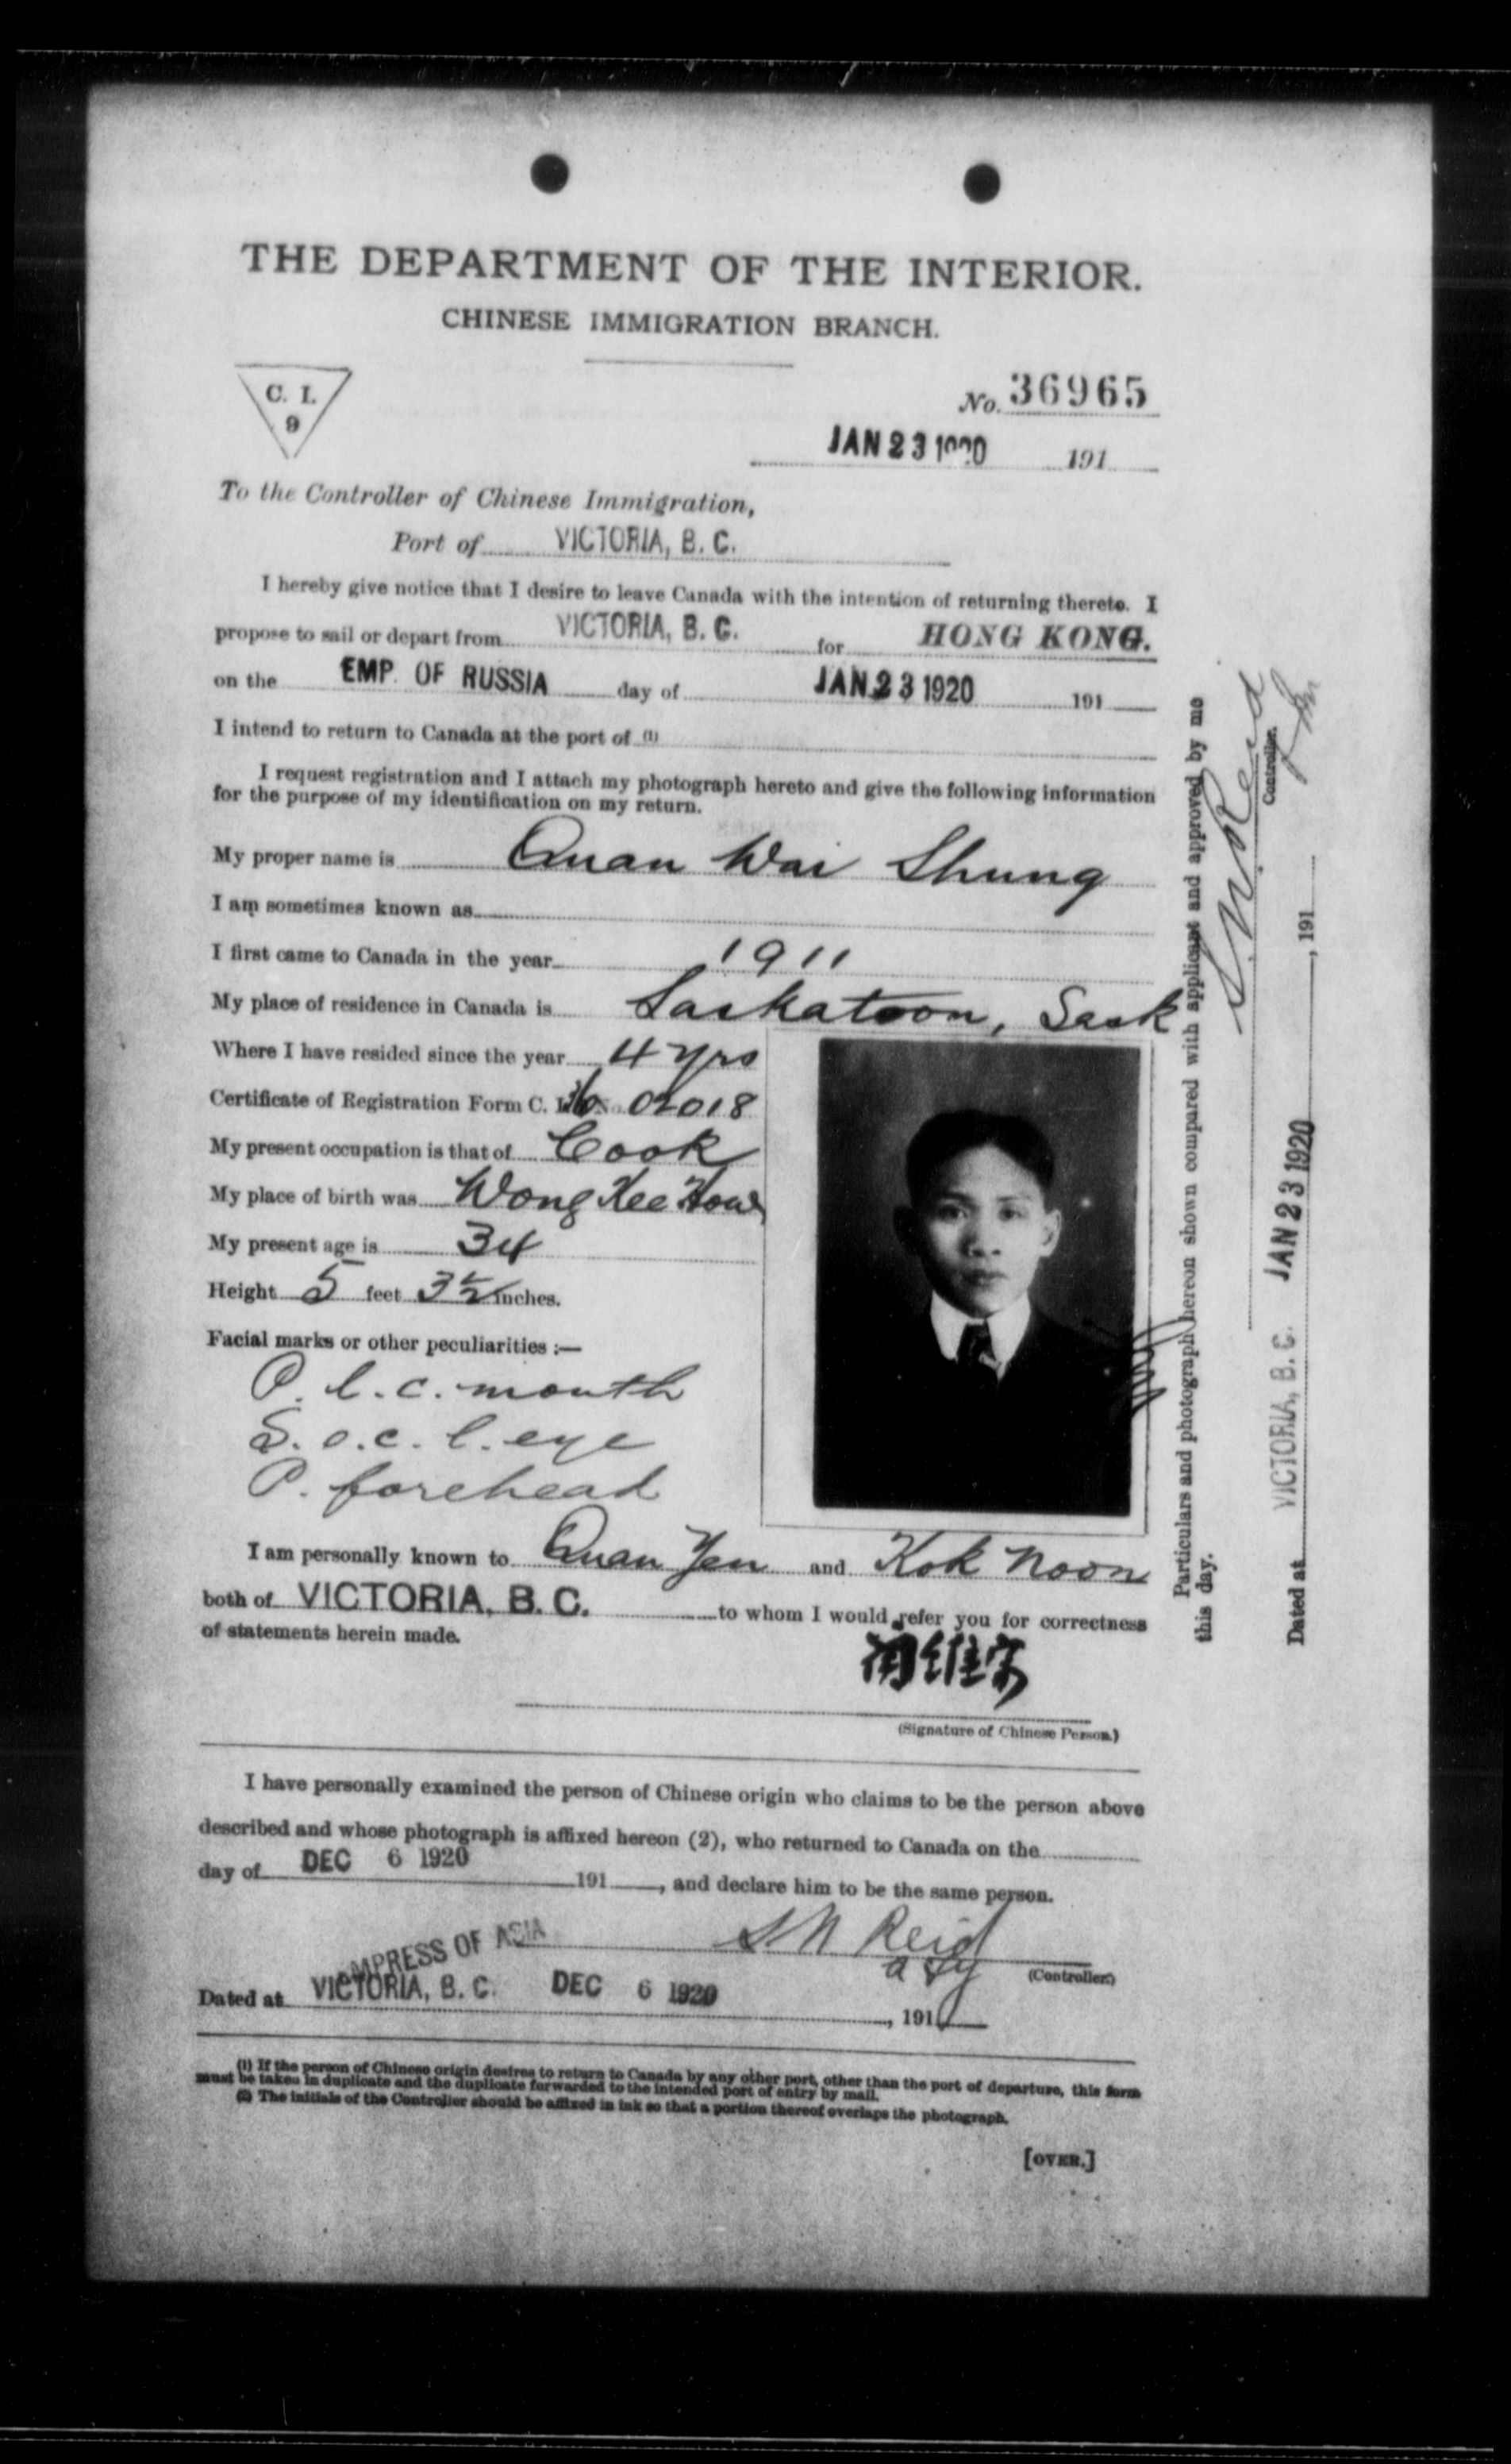 THE DEPARTMENT OF THE INTERIOR.
CHINESE IMMIGRATION BRANCH.
C. I.
9
No. 36965
JAN 23 1920 191
To the Controller of Chinese Immigration,
Port of VICTORIA, B. C.
I hereby give notice that I desire to leave Canada with the intention of returning thereto. I
propose to sail or depart from VICTORIA, B. C. for HONG KONG.
on the EMP. OF RUSSIA day of JAN 23 1920 191
I intend to return to Canada at the port of (1)
I request registration and I attach my photograph hereto and give the following information
for the purpose of my identification on my return.
My proper name is Quan Wai Shung
I am sometimes known as
I first came to Canada in the year 1911
My place of residence in Canada is Saskatoon, Sask
Where I have resided since the year 4 yrs
Certificate of Registration Form C. I. 36 No. 02018
My present occupation is that of Cook
My place of birth was Wong Kee How
My present age is 34
Height 5 feet 3 1/2 inches.
Facial marks or other peculiarities :—
P. l. c. mouth
S. o. c. l. eye
P. forehead
I am personally known to Quan Yen and Kok Noon
both of VICTORIA, B. C. to whom I would refer you for correctness
of statements herein made.
維宗
(Signature of Chinese Person.)
I have personally examined the person of Chinese origin who claims to be the person above
described and whose photograph is affixed hereon (2), who returned to Canada on the
day of DEC 6 1920 191 , and declare him to be the same person.
EMPRESS OF ASIA
S N Reid
(Controller.)
Dated at VICTORIA, B. C. DEC 6 1920 , 191
(1) If the person of Chinese origin desires to return to Canada by any other port, other than the port of departure, this form
must be taken in duplicate and the duplicate forwarded to the intended port of entry by mail.
(2) The initials of the Controller should be affixed in ink so that a portion thereof overlaps the photograph.
[OVER.]
Particulars and photograph hereon shown compared with applicant and approved by me
this day.
S. N. Reid
Controller.
Dated at VICTORIA, B. C. JAN 23 1920 , 191